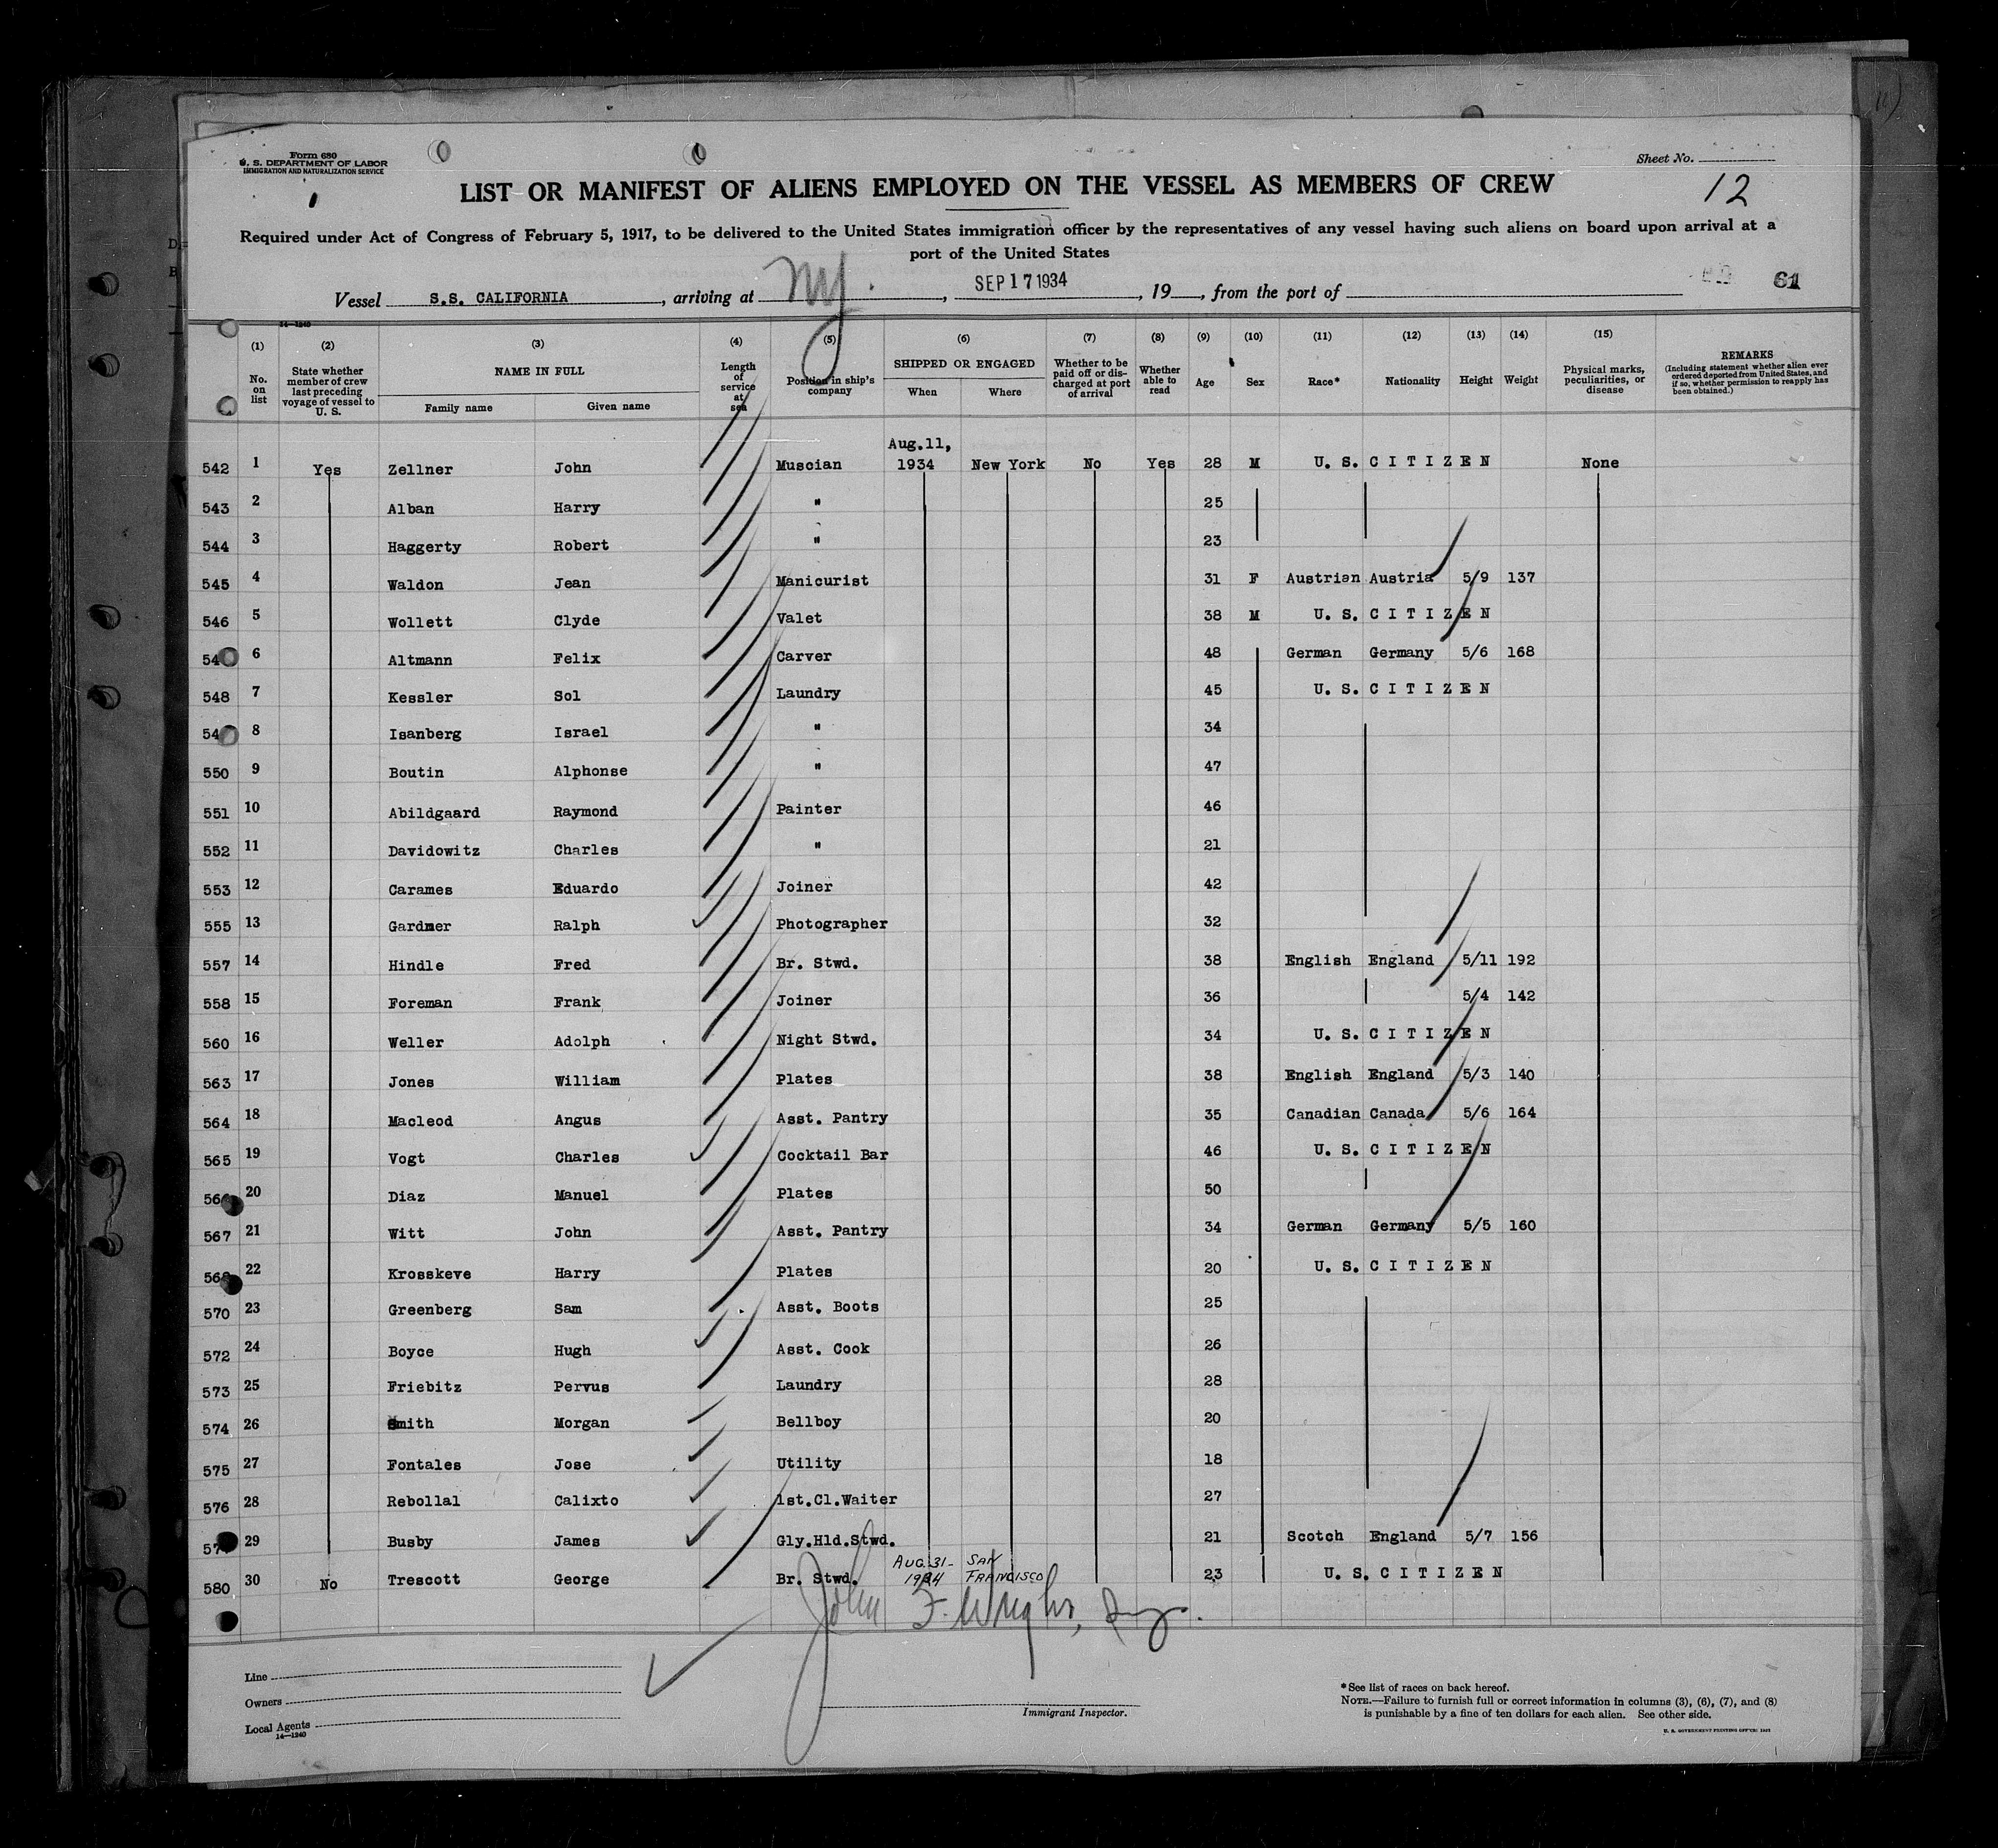 Form 680
U. S. DEPARTMENT OF LABOR
IMMIGRATION AND NATURALIZATION SERVICE
Sheet No.
12
LIST OR MANIFEST OF ALIENS EMPLOYED ON THE VESSEL AS MEMBERS OF CREW
Required under Act of Congress of February 5, 1917, to be delivered to the United States immigration officer by the representatives of any vessel having such aliens on board upon arrival at a
port of the United States
Vessel S.S. CALIFORNIA, arriving at NY., SEP 17 1934, 19, from the port of 61
14—1240
(1) (2) (3) (4) (5) (6) (7) (8) (9) (10) (11) (12) (13) (14) (15)
No. on list
State whether member of crew last preceding voyage of vessel to U. S.
NAME IN FULL
Family name Given name
Length of service at sea
Position in ship's company
SHIPPED OR ENGAGED
When Where
Whether to be paid off or discharged at port of arrival
Whether able to read
Age Sex Race* Nationality Height Weight
Physical marks, peculiarities, or disease
REMARKS
(Including statement whether alien ever ordered deported from United States, and if so, whether permission to reapply has been obtained.)
Aug.11,
542 1 Yes Zellner John Muscian 1934 New York No Yes 28 M U. S. CITIZEN None
543 2 Alban Harry " 25
544 3 Haggerty Robert " 23
545 4 Waldon Jean Manicurist 31 F Austrian Austria 5/9 137
546 5 Wollett Clyde Valet 38 M U. S. CITIZEN
54 6 Altmann Felix Carver 48 German Germany 5/6 168
548 7 Kessler Sol Laundry 45 U. S. CITIZEN
54 8 Isanberg Israel " 34
550 9 Boutin Alphonse " 47
551 10 Abildgaard Raymond Painter 46
552 11 Davidowitz Charles " 21
553 12 Carames Eduardo Joiner 42
555 13 Gardner Ralph Photographer 32
557 14 Hindle Fred Br. Stwd. 38 English England 5/11 192
558 15 Foreman Frank Joiner 36 5/4 142
560 16 Weller Adolph Night Stwd. 34 U. S. CITIZEN
563 17 Jones William Plates 38 English England 5/3 140
564 18 Macleod Angus Asst. Pantry 35 Canadian Canada 5/6 164
565 19 Vogt Charles Cocktail Bar 46 U. S. CITIZEN
56 20 Diaz Manuel Plates 50
567 21 Witt John Asst. Pantry 34 German Germany 5/5 160
56 22 Krosskeve Harry Plates 20 U. S. CITIZEN
570 23 Greenberg Sam Asst. Boots 25
572 24 Boyce Hugh Asst. Cook 26
573 25 Friebitz Pervus Laundry 28
574 26 Smith Morgan Bellboy 20
575 27 Fontales Jose Utility 18
576 28 Rebollal Calixto 1st.Cl.Waiter 27
57 29 Busby James Gly.Hld.Stwd. 21 Scotch England 5/7 156
AUG. 31- SAN
580 30 No Trescott George Br. Stwd. 1934 FRANCISCO 23 U. S. CITIZEN
John F. Wright,
Line
Owners
Local Agents
14—1240
Immigrant Inspector.
*See list of races on back hereof.
NOTE.—Failure to furnish full or correct information in columns (3), (6), (7), and (8)
is punishable by a fine of ten dollars for each alien. See other side.
U. S. GOVERNMENT PRINTING OFFICE: